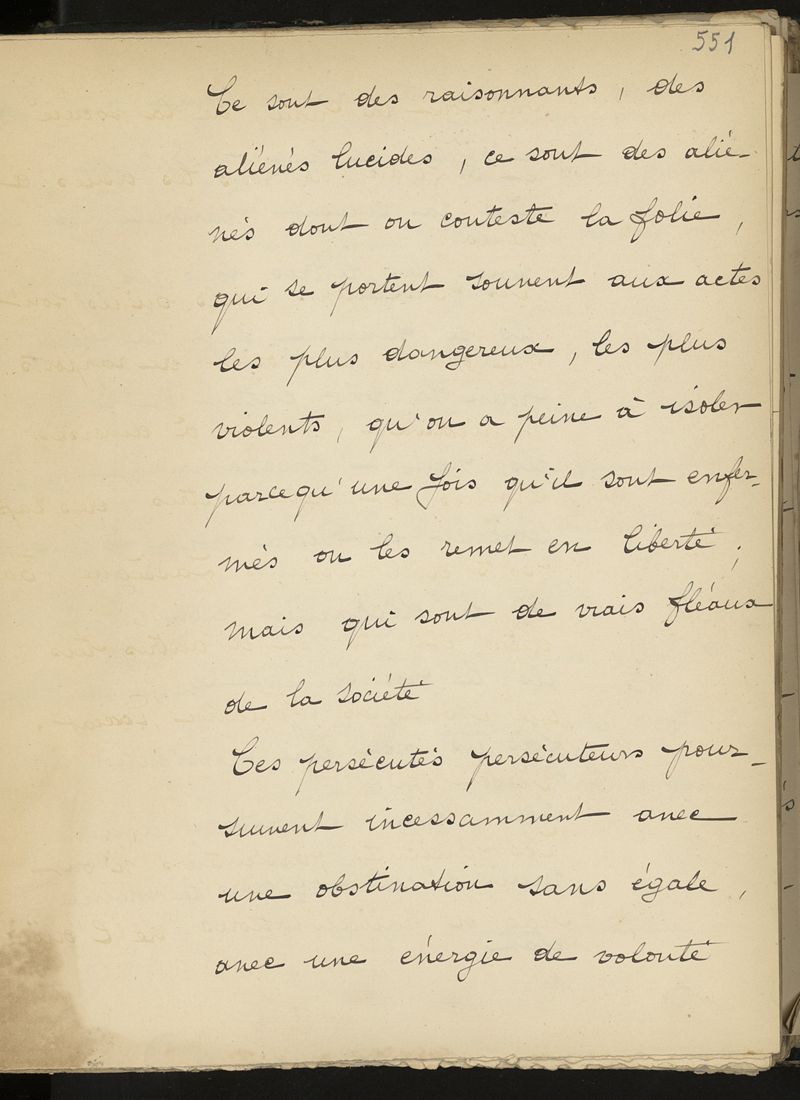 551
Ce sont des raisonnants, des
aliénés lucides, ce sont des alié-
nés dont on conteste la folie,
qui se portent souvent aux actes
les plus dangereux, les plus
violents, qu'on a peine à isoler
parcequ'une fois qu'il sont enfer-
més on les remet en liberté;
mais qui sont de vrais fléaux
de la société
Ces persécutés persécuteurs pour-
suivent incessamment avec
une obstination sans égale,
avec une énergie de volonté